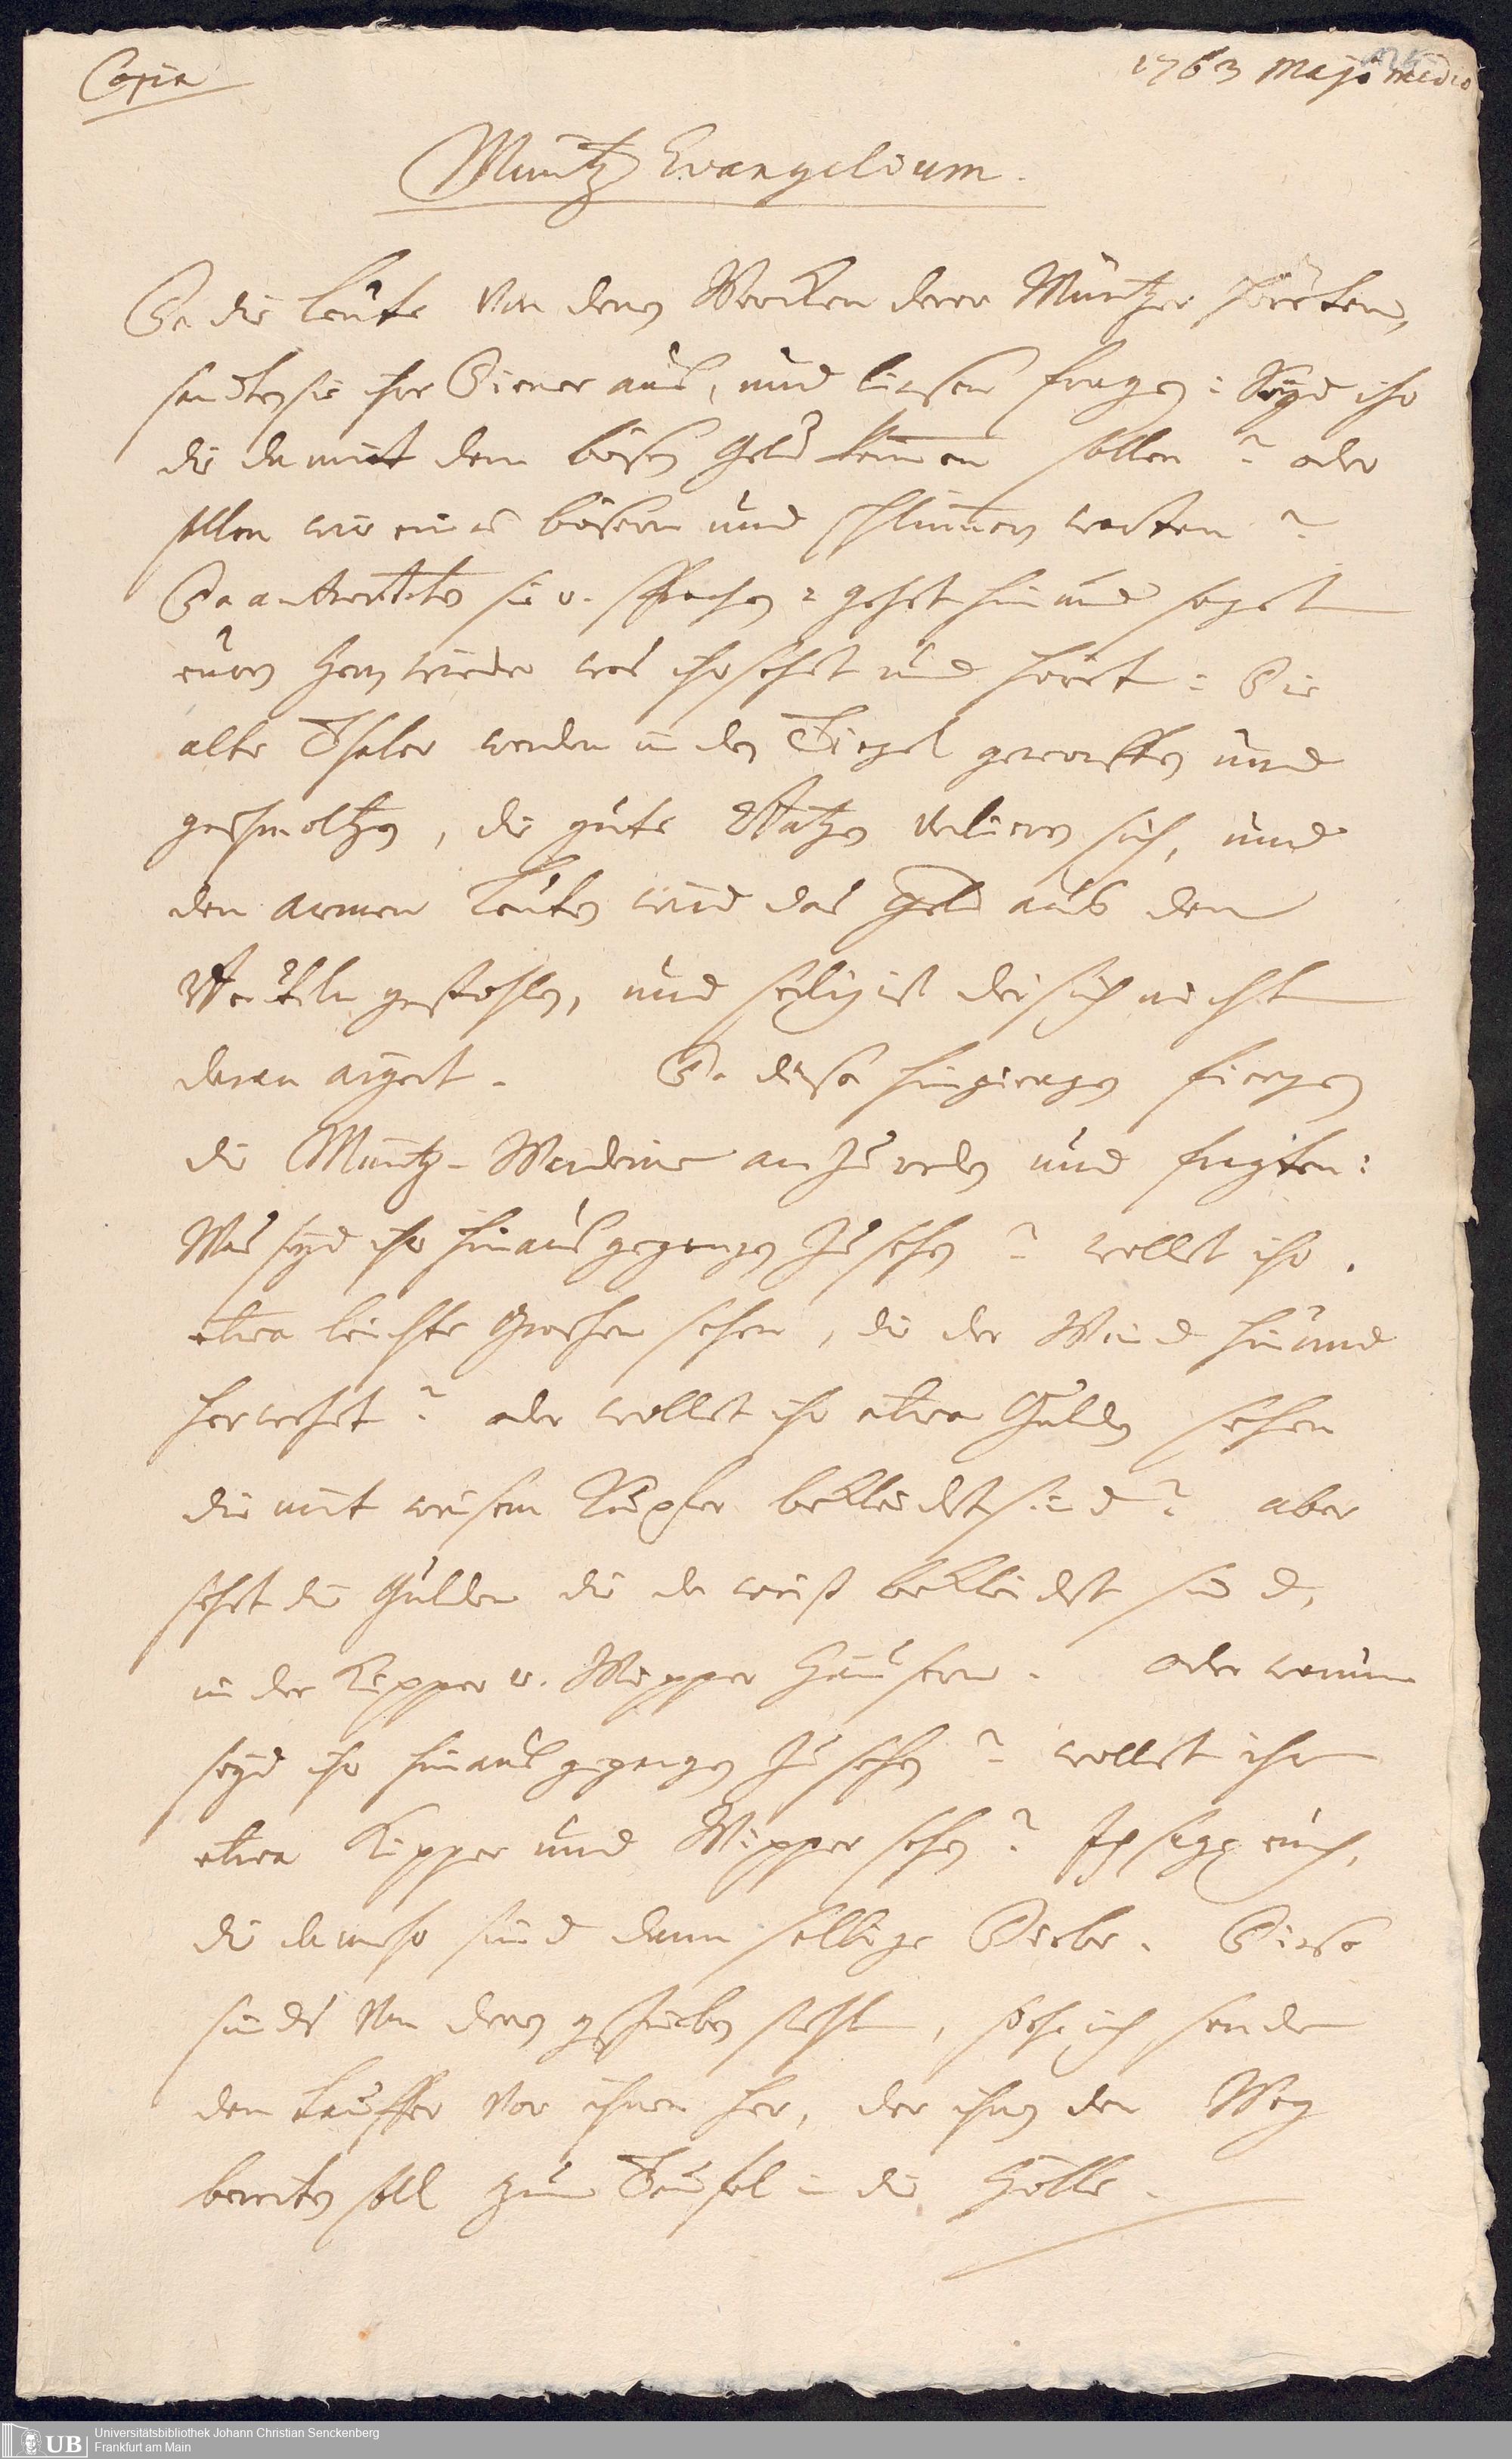 Copia
1763 Majo medio
Müntz Evangelium.
Da die Leüte von denen Wercken derer Müntzer höreten,
sandten sie ihre Diener aus, und liesen fragen: Seyd ihr
die da mit dem bösen Geld kommen sollen? oder
sollen wir eines bösern und schlimmern warten?
Da antworteten sie u. sprachen: gehet hin und saget
euren Herrn wieder was ihr sehet und höret: Die
alte Thaler werden in den Tiegel geworffen und
geschmoltzen, die gute Batzen verlieren sich, und
den armen Leüten wird das Geld aus den
Beüteln gestohlen, und seelig ist der sich nicht
daran ärgert. Da diese hingiengen fiengen
die Müntz-Wardeine an zu reden und fragten:
Was seyd ihr hinaus gegangen zu sehen? wollet ihr
etwa leichte Groschen sehen, die der Wind hin und
her wehet? oder wollet ihr etwa Gulden sehen
die mit weisem Kupfer bekleidet sind? aber
sehet die Gulden die da weiß bekleidet sind,
in der Kipper u. Wipper Häusern. oder warum
seyd ihr hinaus gegangen zu sehen? wollet ihr
etwa Kipper und Wipper sehen? Ich sage euch,
die da mehr sind dann selbige Diebe. Diese
sinds von denen geschrieben steht, siehe ich sende
den Lauffer vor ihnen her, der ihnen den Weg
bereiten soll zum Teufel in die Hölle.
UB
Universitätsbibliothek Johann Christian Senckenberg
Frankfurt am Main